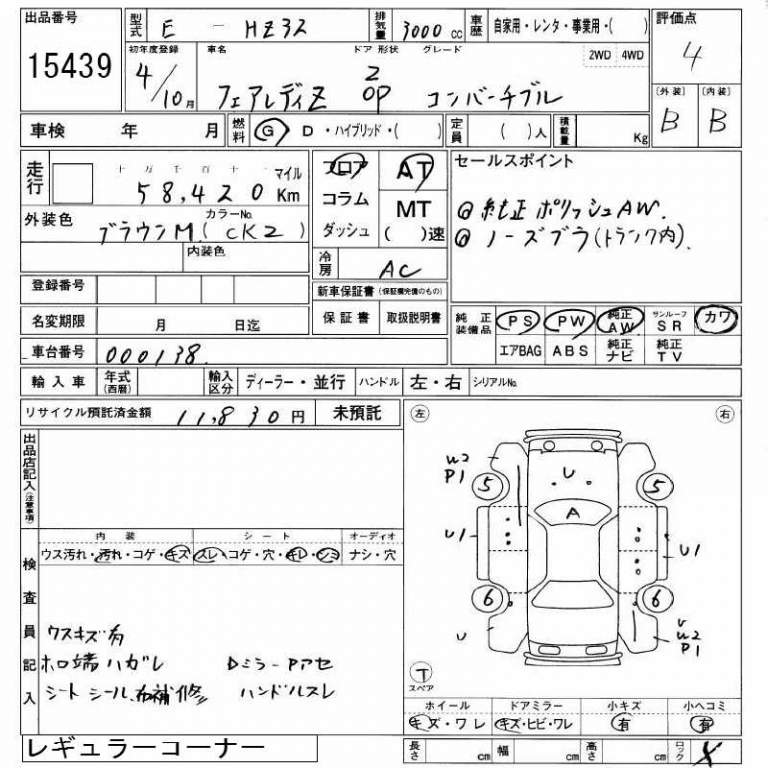 出品番号 型式 E - HZ32 排気量 3000 cc 車歴 自家用・レンタ・事業用・( ) 評価点
15439 初年度登録 車名 ドア 形状 グレード 2WD 4WD 4
4/10月 フェアレディZ 2 OP コンバーチブル [外装] [内装]
B B
車検 年 月 燃料 G D ・ハイブリッド・( ) 定員 ( )人 積載量 Kg
走行 十万千百十一 マイル
58,420 Km
フロア AT
コラム MT
ダッシュ ( )速
セールスポイント
◎ 純正 ポリッシュAW.
◎ ノーズブラ(トランク内).
外装色 カラーNo.
ブラウンM (CK2)
内装色
冷房 AC
登録番号
新車保証書 (保証欄完備のもの)
名変期限 月 日迄
保証書 取扱説明書
純正装備品 PS PW 純正AW サンルーフSR カワ
エアBAG ABS 純正ナビ 純正TV
車台番号 000138.
輸入車 年式(西暦) 輸入区分 ディーラー・並行 ハンドル 左・右 シリアルNo.
リサイクル預託済金額 11,830 円 未預託
左 右
出品店記入(注意事項)
U2 P1 5 U 5
A
U1 U1
6 6
U U U2 P1
T
スペア
内装 シート オーディオ
ウス汚れ・汚れ・コゲ・キズ スレ・コゲ・穴・キレ・シミ ナシ・穴
検査員記入
ウスキズ有
ホロ端ハガレ DミラーPアセ
シート シール、布補修 ハンドルスレ
ホイール ドアミラー 小キズ 小ヘコミ
キズ・ワレ キズ・ヒビ・ワレ 有 有
レギュラーコーナー
長さ cm 幅 cm 高さ cm ロック